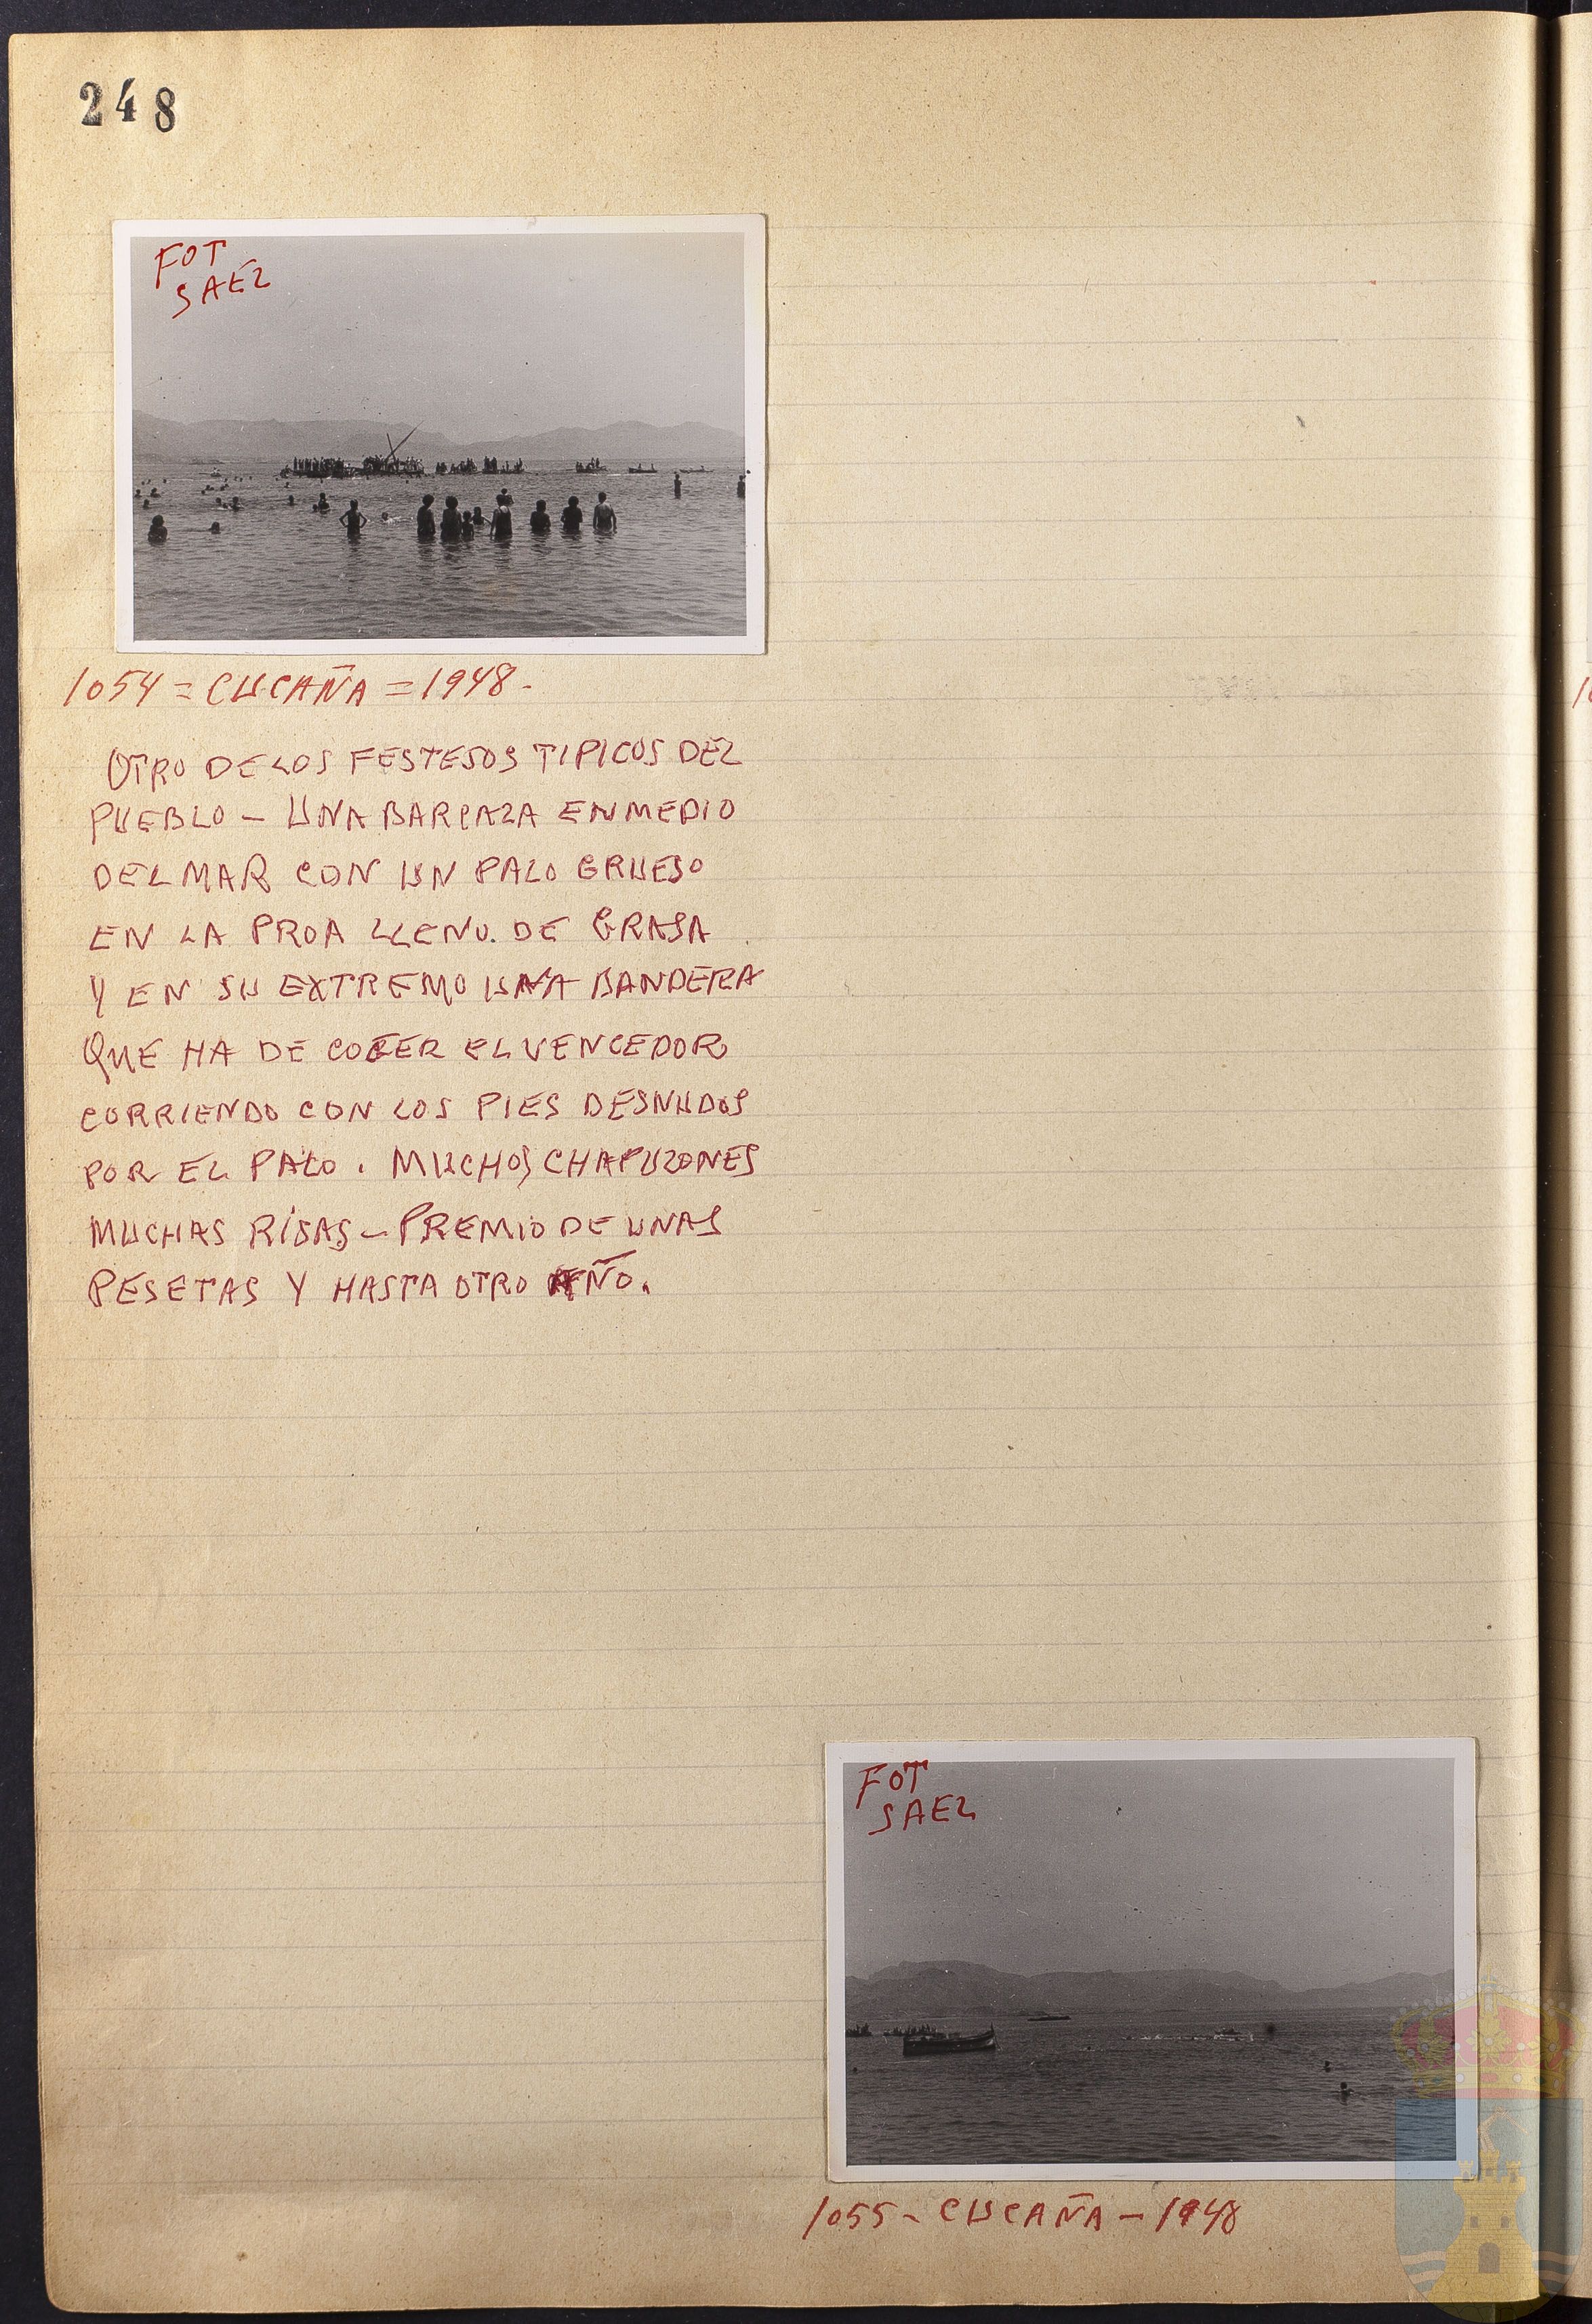 248
FOT
SAEZ
1054 = CUCAÑA = 1948 -
OTRO DE LOS FESTESOS TIPICOS DEL
PUEBLO - UNA BARCAZA EN MEDIO
DEL MAR CON UN PALO GRUESO
EN LA PROA LLENO. DE GRASA
Y EN SU EXTREMO UNA BANDERA
QUE HA DE COGER EL VENCEDOR
CORRIENDO CON LOS PIES DESNUDOS
POR EL PALO. MUCHOS CHAPUZONES
MUCHAS RISAS - PREMIO DE UNAS
PESETAS Y HASTA OTRO AÑO.
FOT
SAEZ
1055 - CUCAÑA - 1948